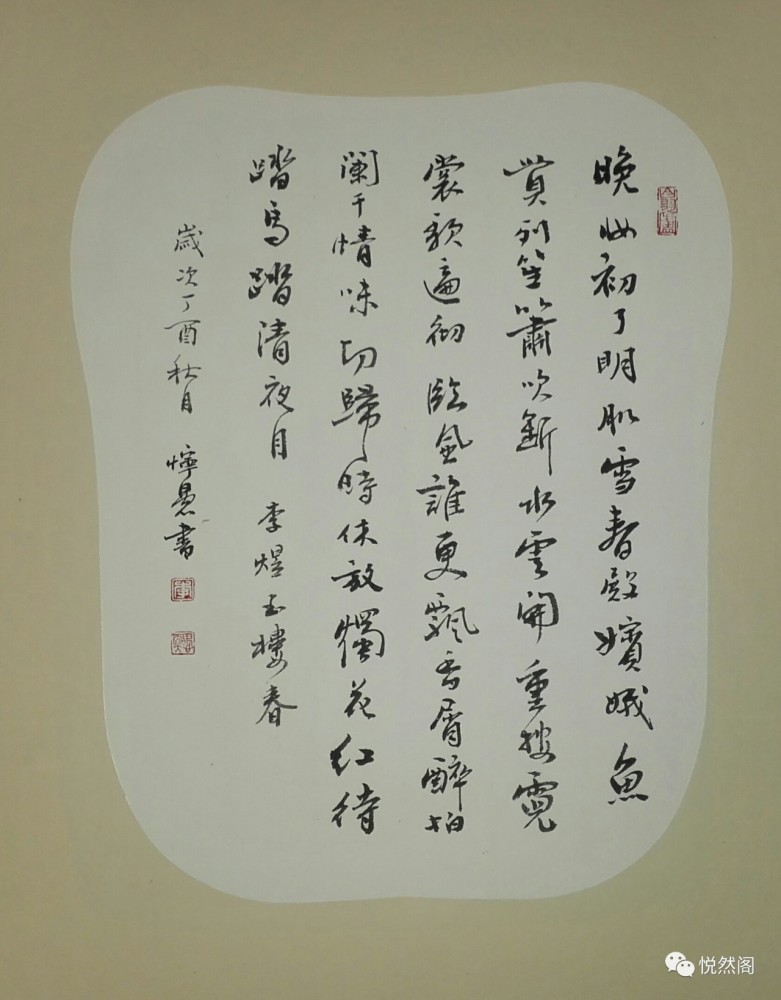 晚妝初了明肌雪春殿嬪娥魚
貫列笙簫吹斷水雲開重按霓
裳歌遍徹臨風誰更飄香屑醉拍
闌干情味切歸時休放燭花红待
踏馬踏清夜月 李煜玉樓春
歲次丁酉秋月 書
悦然阁